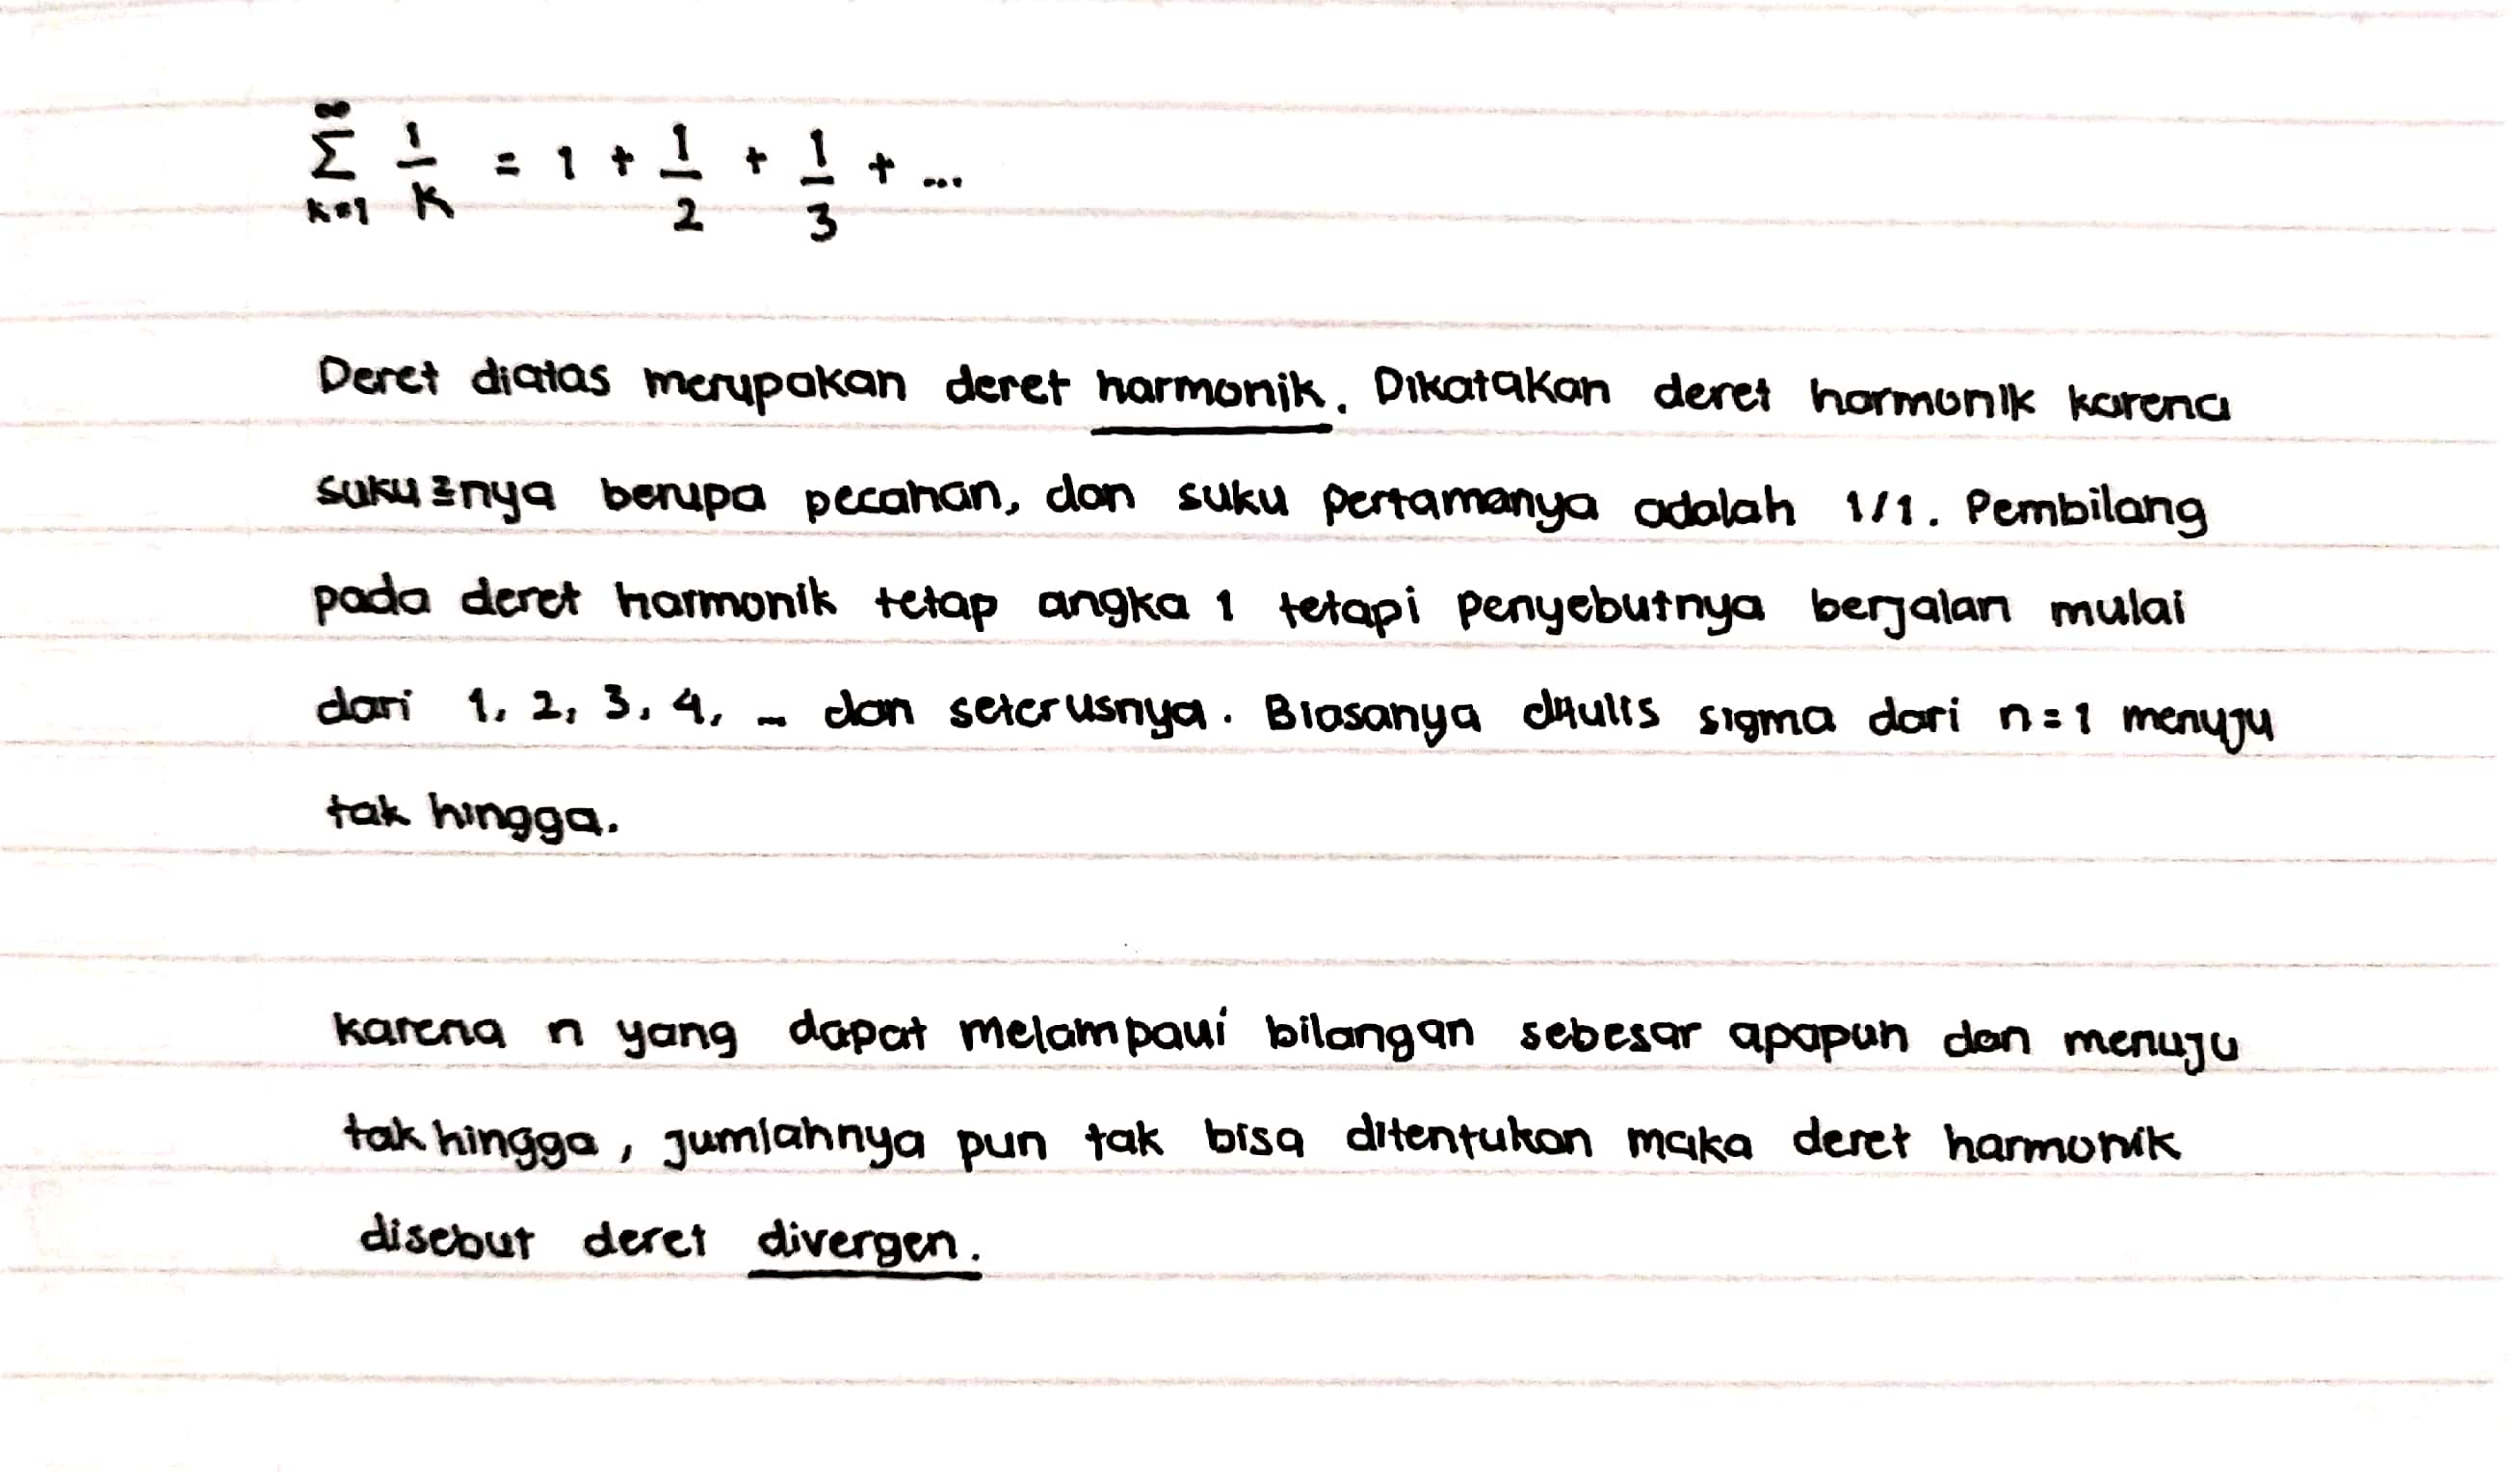 ∞
Σ 1/k = 1 + 1/2 + 1/3 + ...
k=1
Deret diatas merupakan deret harmonik. Dikatakan deret harmonik karena
suku2nya berupa pecahan, dan suku pertamanya adalah 1/1. Pembilang
pada deret harmonik tetap angka 1 tetapi penyebutnya berjalan mulai
dari 1, 2, 3, 4, ... dan seterusnya. Biasanya ditulis sigma dari n=1 menuju
tak hingga.
karena n yang dapat melampaui bilangan sebesar apapun dan menuju
tak hingga, jumlahnya pun tak bisa ditentukan maka deret harmonik
disebut deret divergen.